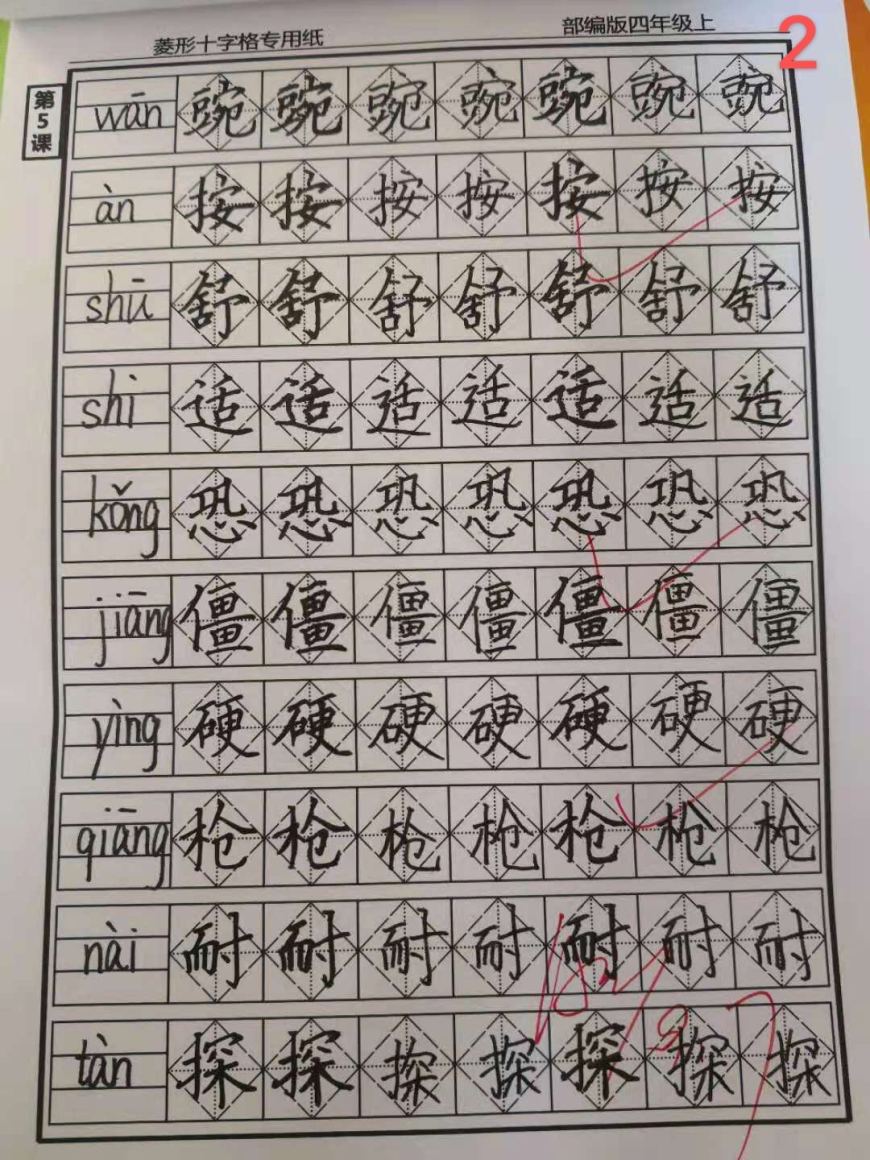 菱形十字格专用纸 部编版四年级上 2
第5课
wān 豌 豌 豌 豌 豌 豌 豌
àn 按 按 按 按 按 按 按
shū 舒 舒 舒 舒 舒 舒 舒
shì 适 适 适 适 适 适 适
kǒng 恐 恐 恐 恐 恐 恐 恐
jiāng 僵 僵 僵 僵 僵 僵 僵
yìng 硬 硬 硬 硬 硬 硬 硬
qiāng 枪 枪 枪 枪 枪 枪 枪
nài 耐 耐 耐 耐 耐 耐 耐
tàn 探 探 探 探 探 探 探